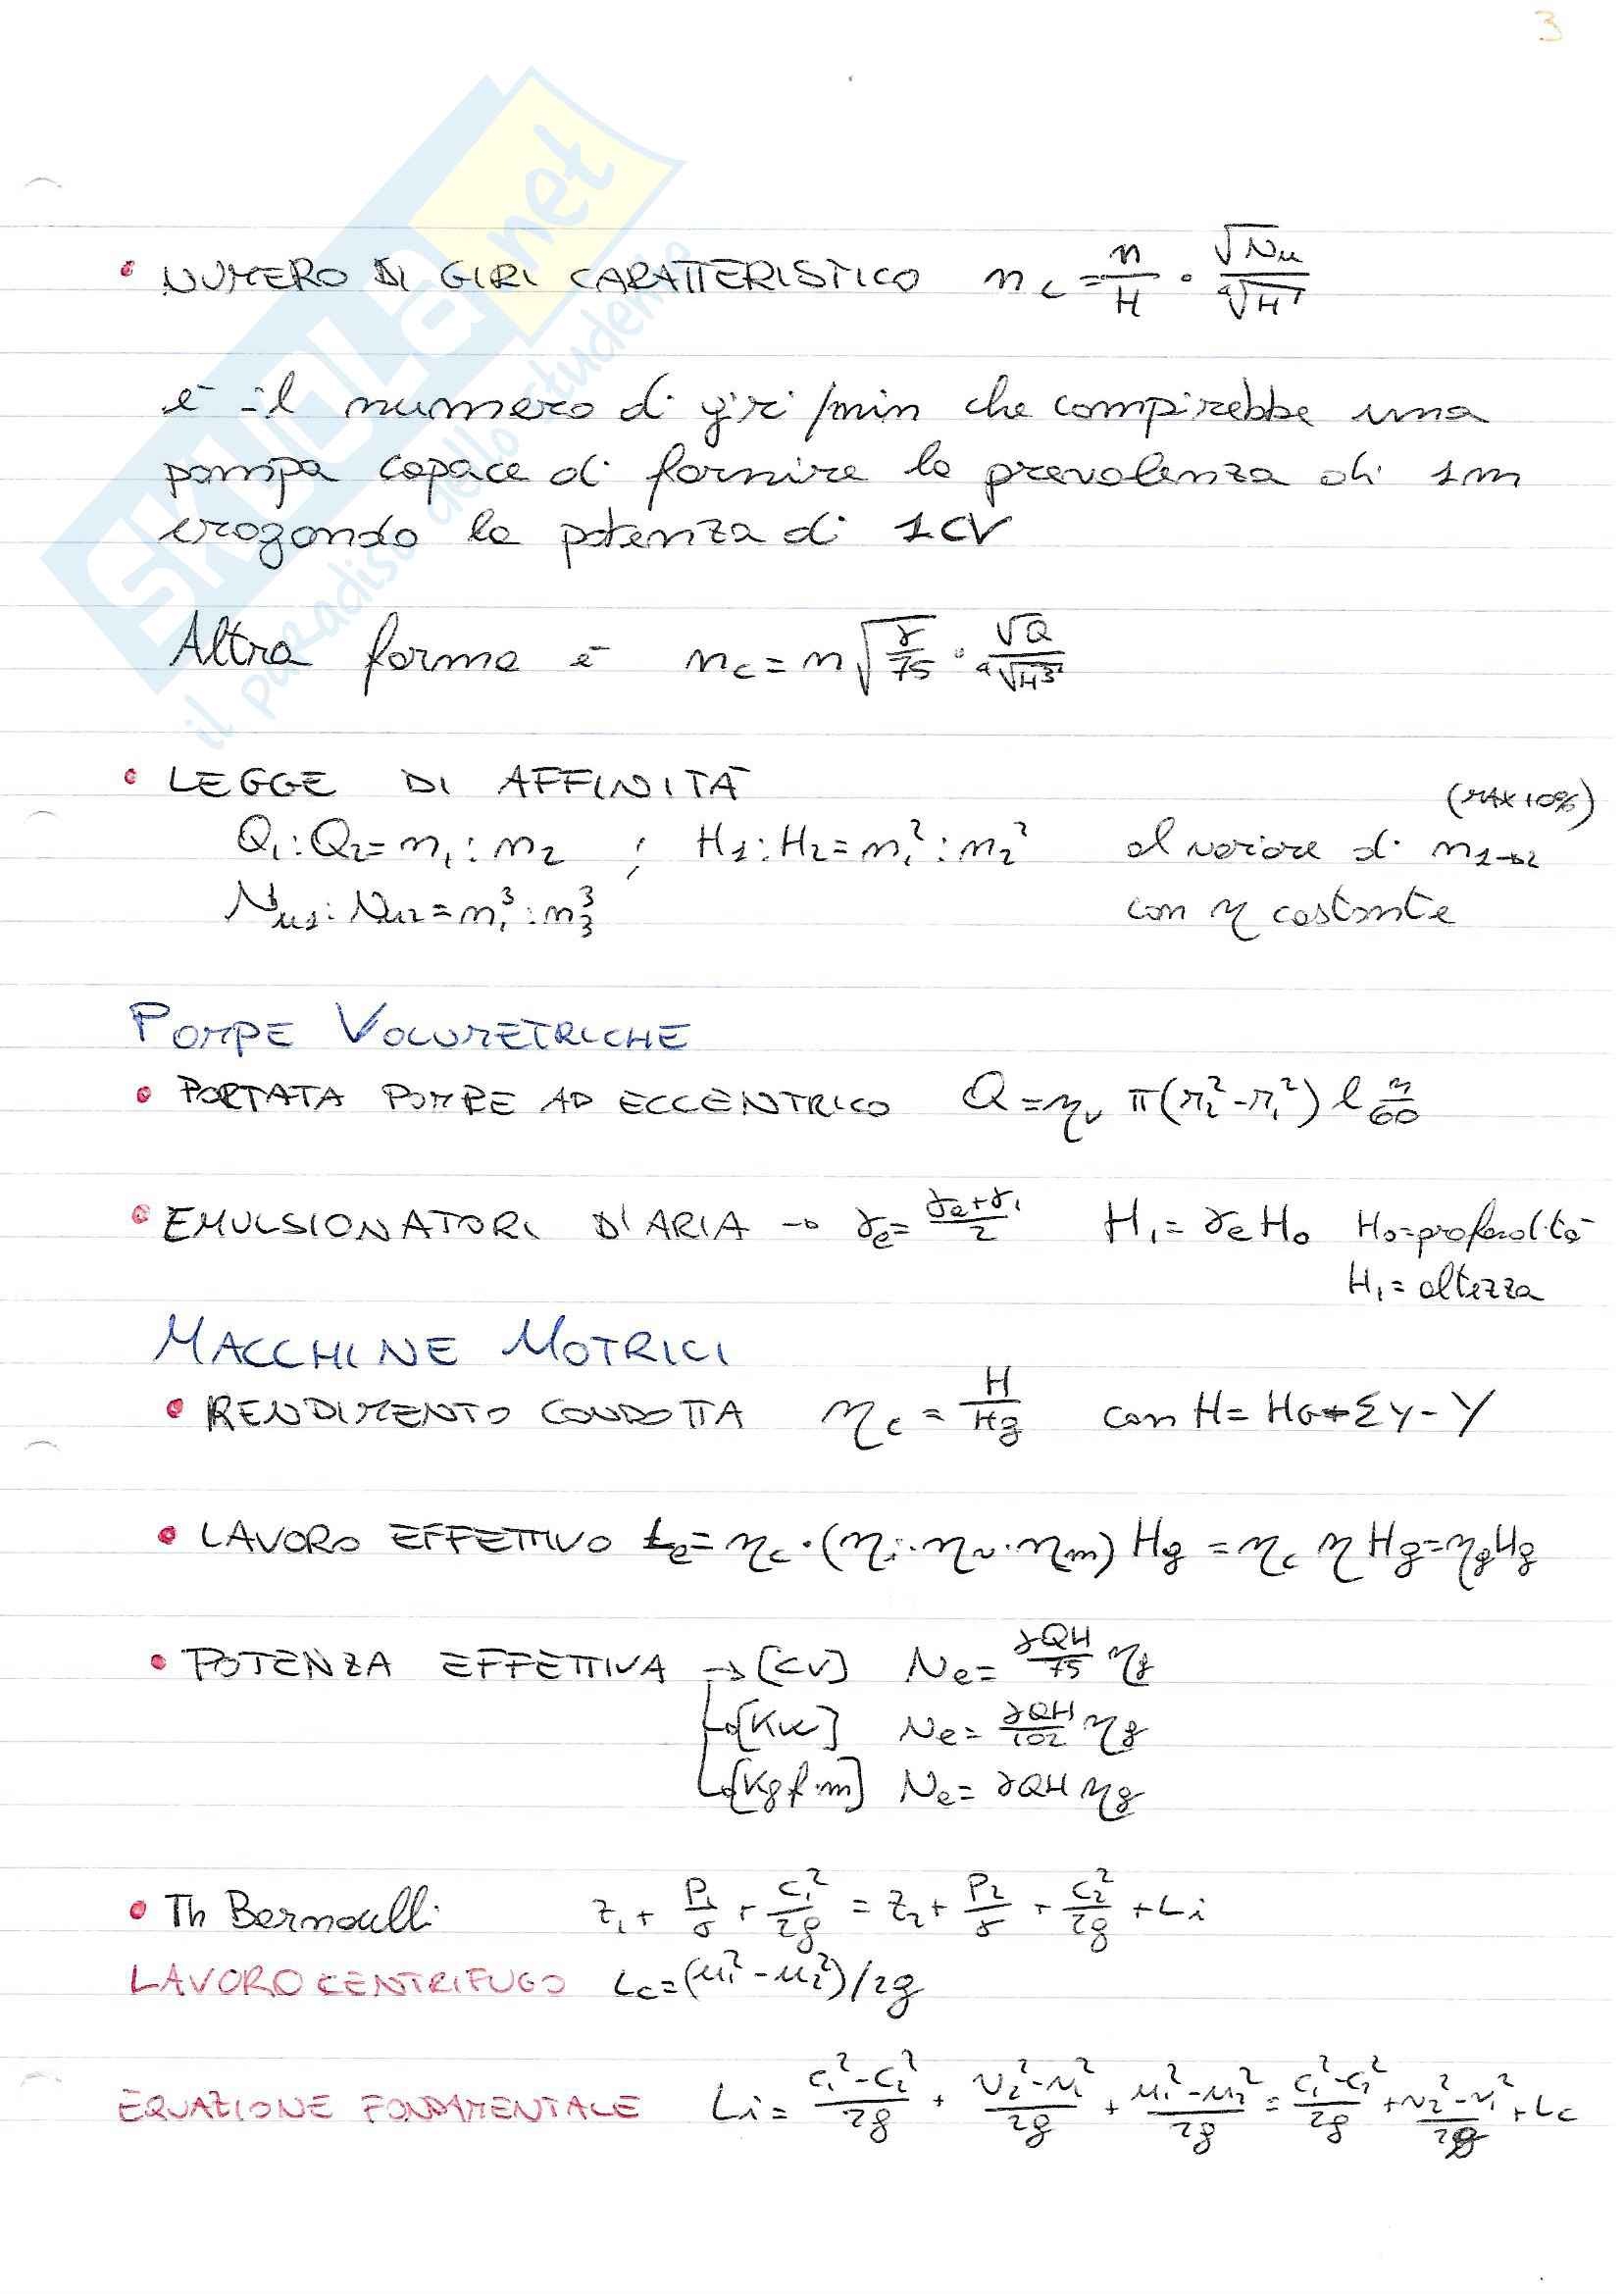 3
SKUOLA.net
il paradiso dello studente
• NUMERO DI GIRI CARATTERISTICO n_c = n/H · √Nu/⁴√H
è il numero di giri/min che compirebbe una
pompa capace di fornire la prevalenza di 1m
erogando la potenza di 1CV
Altra forma è n_c = n √(γ/75) · √Q/⁴√H³
• LEGGE DI AFFINITÀ
(MAX 10%)
Q₁:Q₂=n₁:n₂ ; H₁:H₂=n₁²:n₂² al variare di n₁→₂
Nu₁:Nu₂=n₁³:n₃³ con η costante
POMPE VOLUMETRICHE
• PORTATA POMPE AD ECCENTRICO Q=η_v π(r₂²-r₁²) l n/60
• EMULSIONATORI D'ARIA → γe=(γe+γ₁)/2 H₁=γe H₀ H₀=profondità
H₁=altezza
MACCHINE MOTRICI
• RENDIMENTO CONDOTTA η_c = H/Hg con H= HG+Σy-Y
• LAVORO EFFETTIVO Le=η_c·(η_i·η_v·η_m) Hg = η_c η Hg=η_g Hg
• POTENZA EFFETTIVA → [CV] Ne= γQH/75 ηg
→ [KW] Ne= γQH/102 ηg
→ [Kgf·m] Ne= γQH ηg
• Th Bernoulli z₁ + P₁/γ + c₁²/2g = z₂ + P₂/γ + c₂²/2g + Li
LAVORO CENTRIFUGO Lc=(u₁²-u₂²)/2g
EQUAZIONE FONDAMENTALE Li= (c₁²-c₂²)/2g + (v₂²-v₁²)/2g + (u₁²-u₂²)/2g = (c₁²-c₂²)/2g + (v₂²-v₁²)/2g + Lc